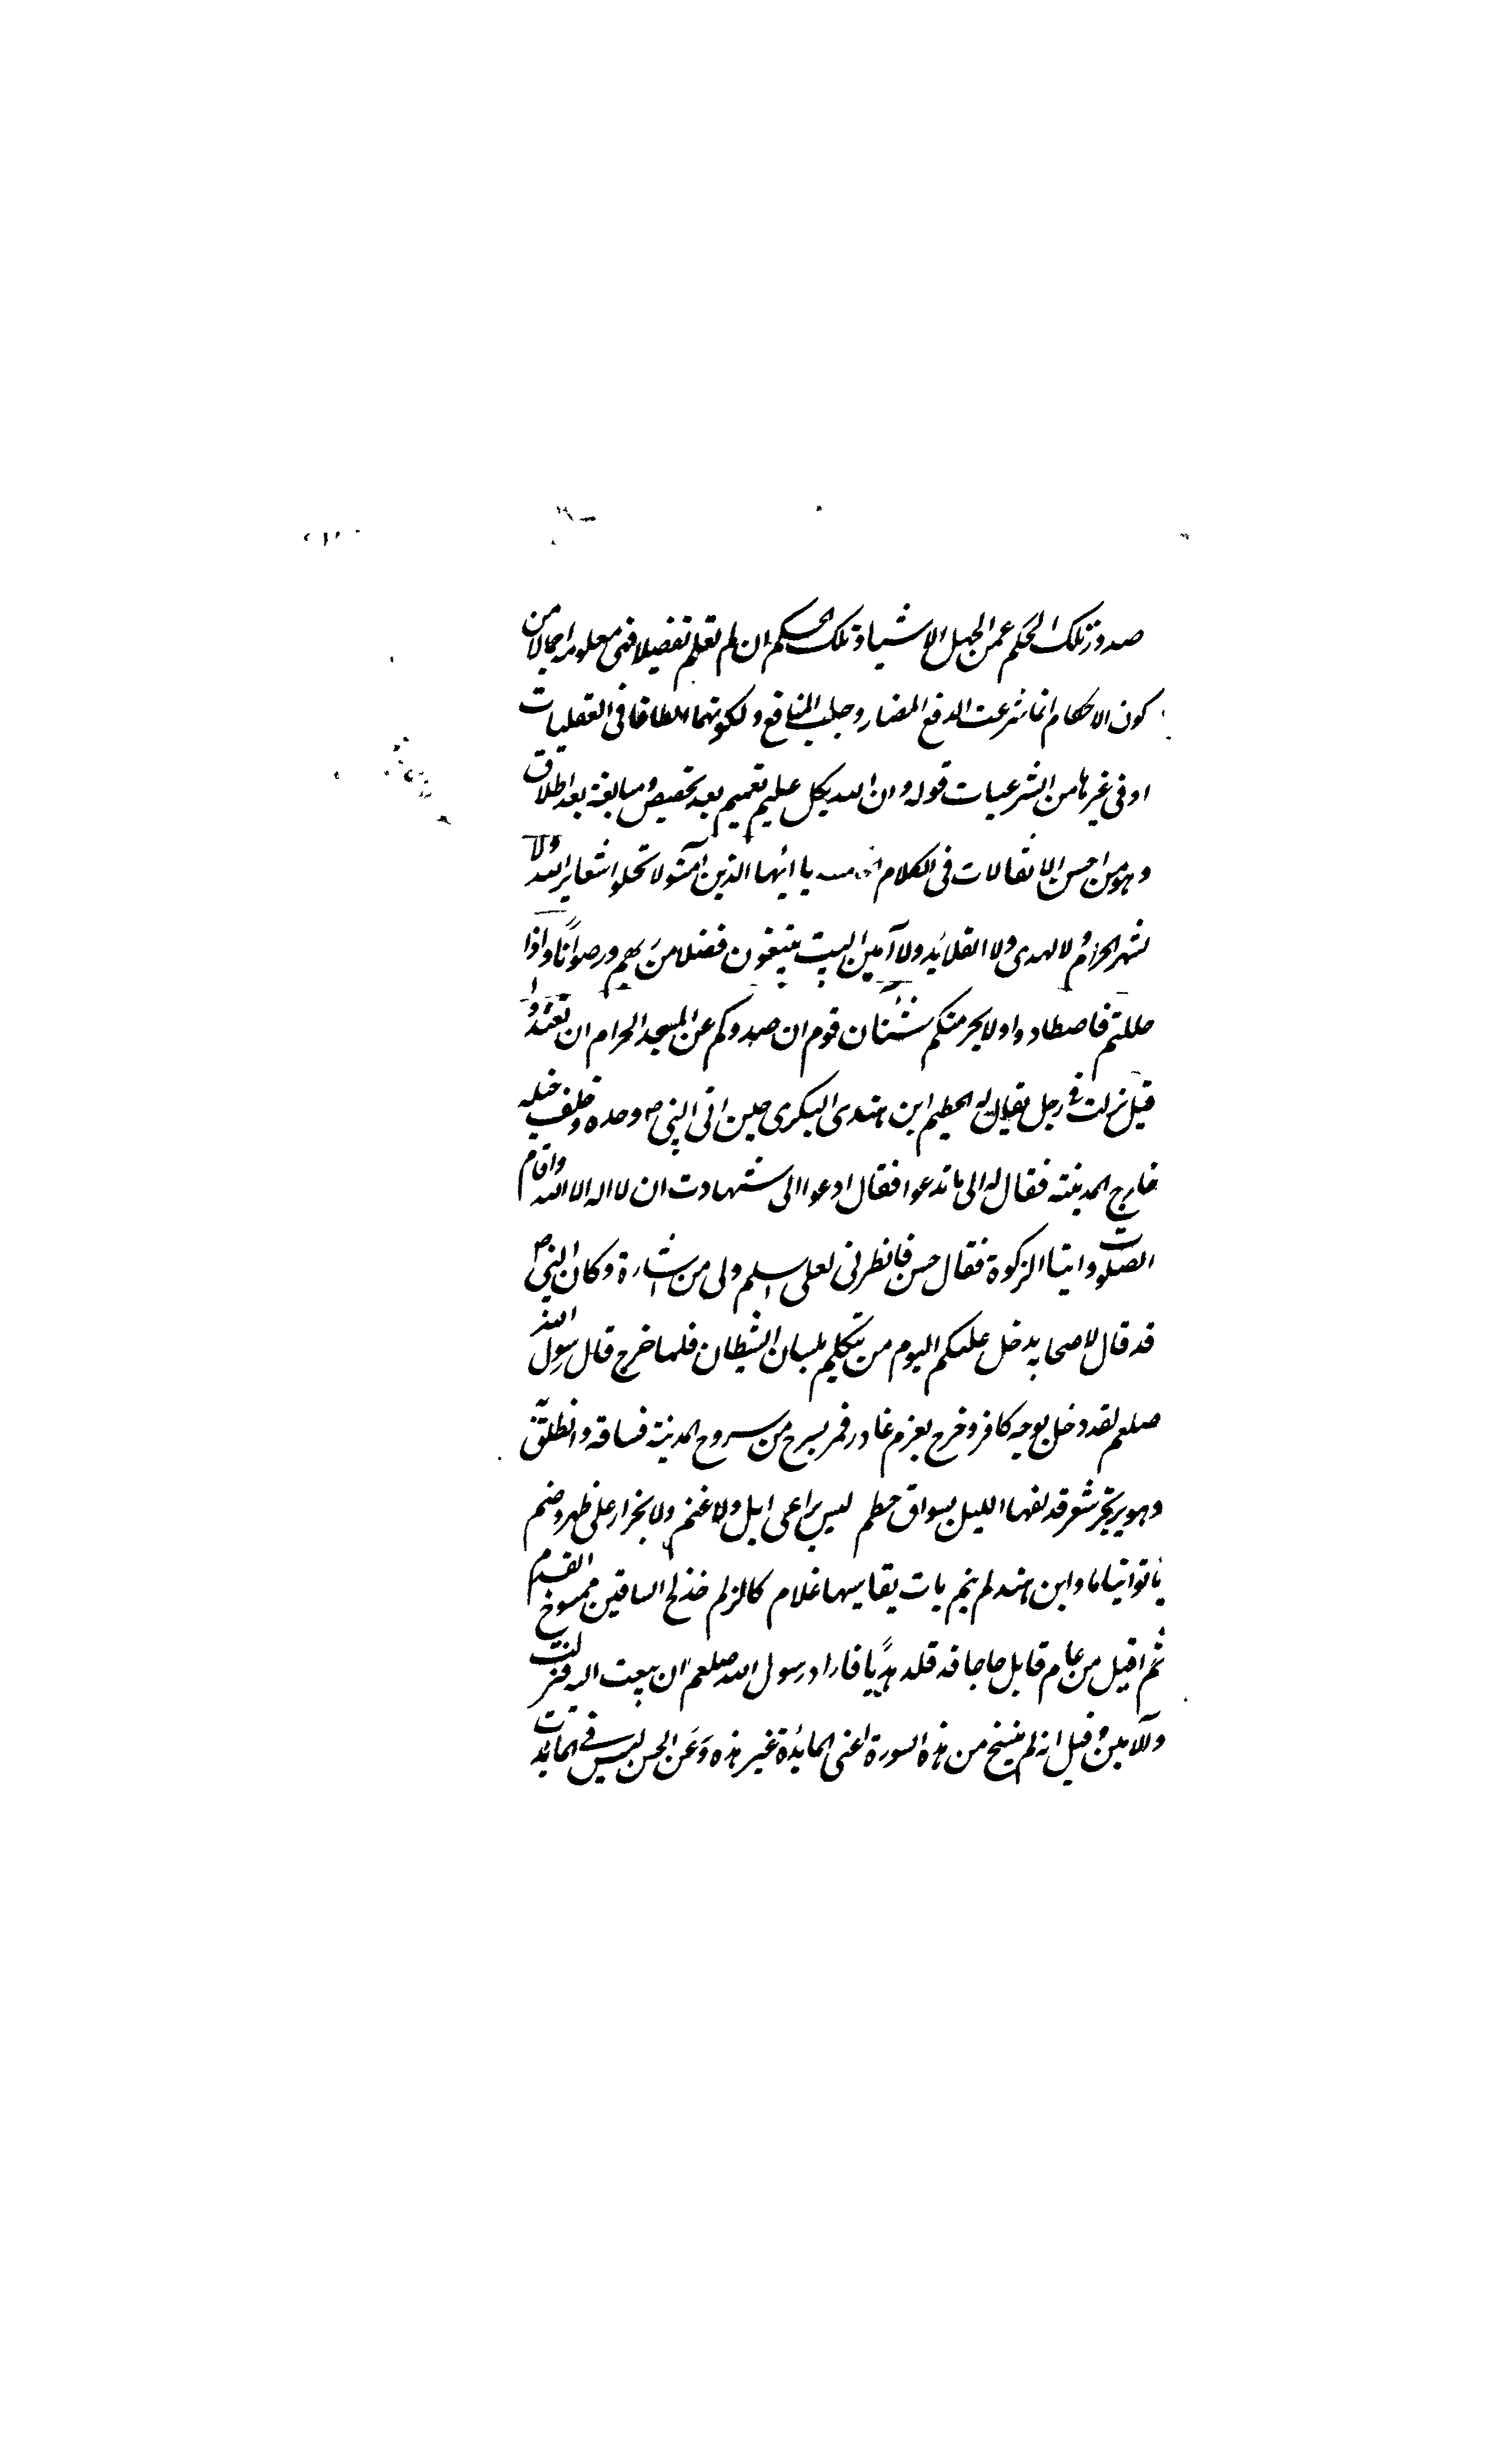 صدور تلك الحكم عمن الجهل الاشياء وتلك الحكم ان لم تعلم تفصيلا فهى معلومة اجمالا من
كون الاحكام انما شرعت لدفع المضار وجلب المنافع ولكونهما الطافا فى العقليات
او فى غيرها من الشرعيات قوله وان الله بكل عليم تعميم بعد تخصيص ومبالغة بعد اطلاق
وهو من احسن الانتقالات فى الكلام يا ايها الذين آمنوا لا تحلوا شعاير الله ولا
لشهر الحرام ولا لهدى ولا القلائد ولا آمين البيت يبتغون فضلا من ربهم ورضوانًا واذا
حللتم فاصطادوا ولا يجرمنكم شنئان قوم ان صدوكم عن المسجد الحرام ان تعتدوا
قيل نزلت فى رجل يقال له الحطيم ابن هندى البكرى حين اتى النبى ص وحده وخلف خيله
خارج المدينة فقال له الى ما تدعوا فقال ادعوا الى شهادت ان لا اله الا الله واقام
الصلوت وايتا الزكوة فقال حسن فانظرنى لعلى اسلم ولى من اشارة وكان النبى ص
قد قال لاصحابه يدخل عليكم اليوم من يتكلم بلسان الشيطان فلما خرج قال رسول الله
صلعم لقد دخل بوجه كافر وخرج بعزم غادر فمر بسرح من سروح المدينة فساقه وانطلق
وهو يرتجز شعر قد لفها الليل بسواق حطم ليس براعى ابل ولا غنم ولا بخرار على ظهر وضم
باتوا نياما وابن هند لم ينم بات يقاسيها غلام كالزلم خدلج الساقين ممسوخ القدم
ثم اقبل من عام قابل حاجا قد قلد هديًا فاراد رسول الله صلعم ان يبعث اليه فنزلت
ولا آمين وقيل انه لم ينسخ من هذه السورة اعنى المائدة غير هذه وعن الحسن ليس فى المائدة